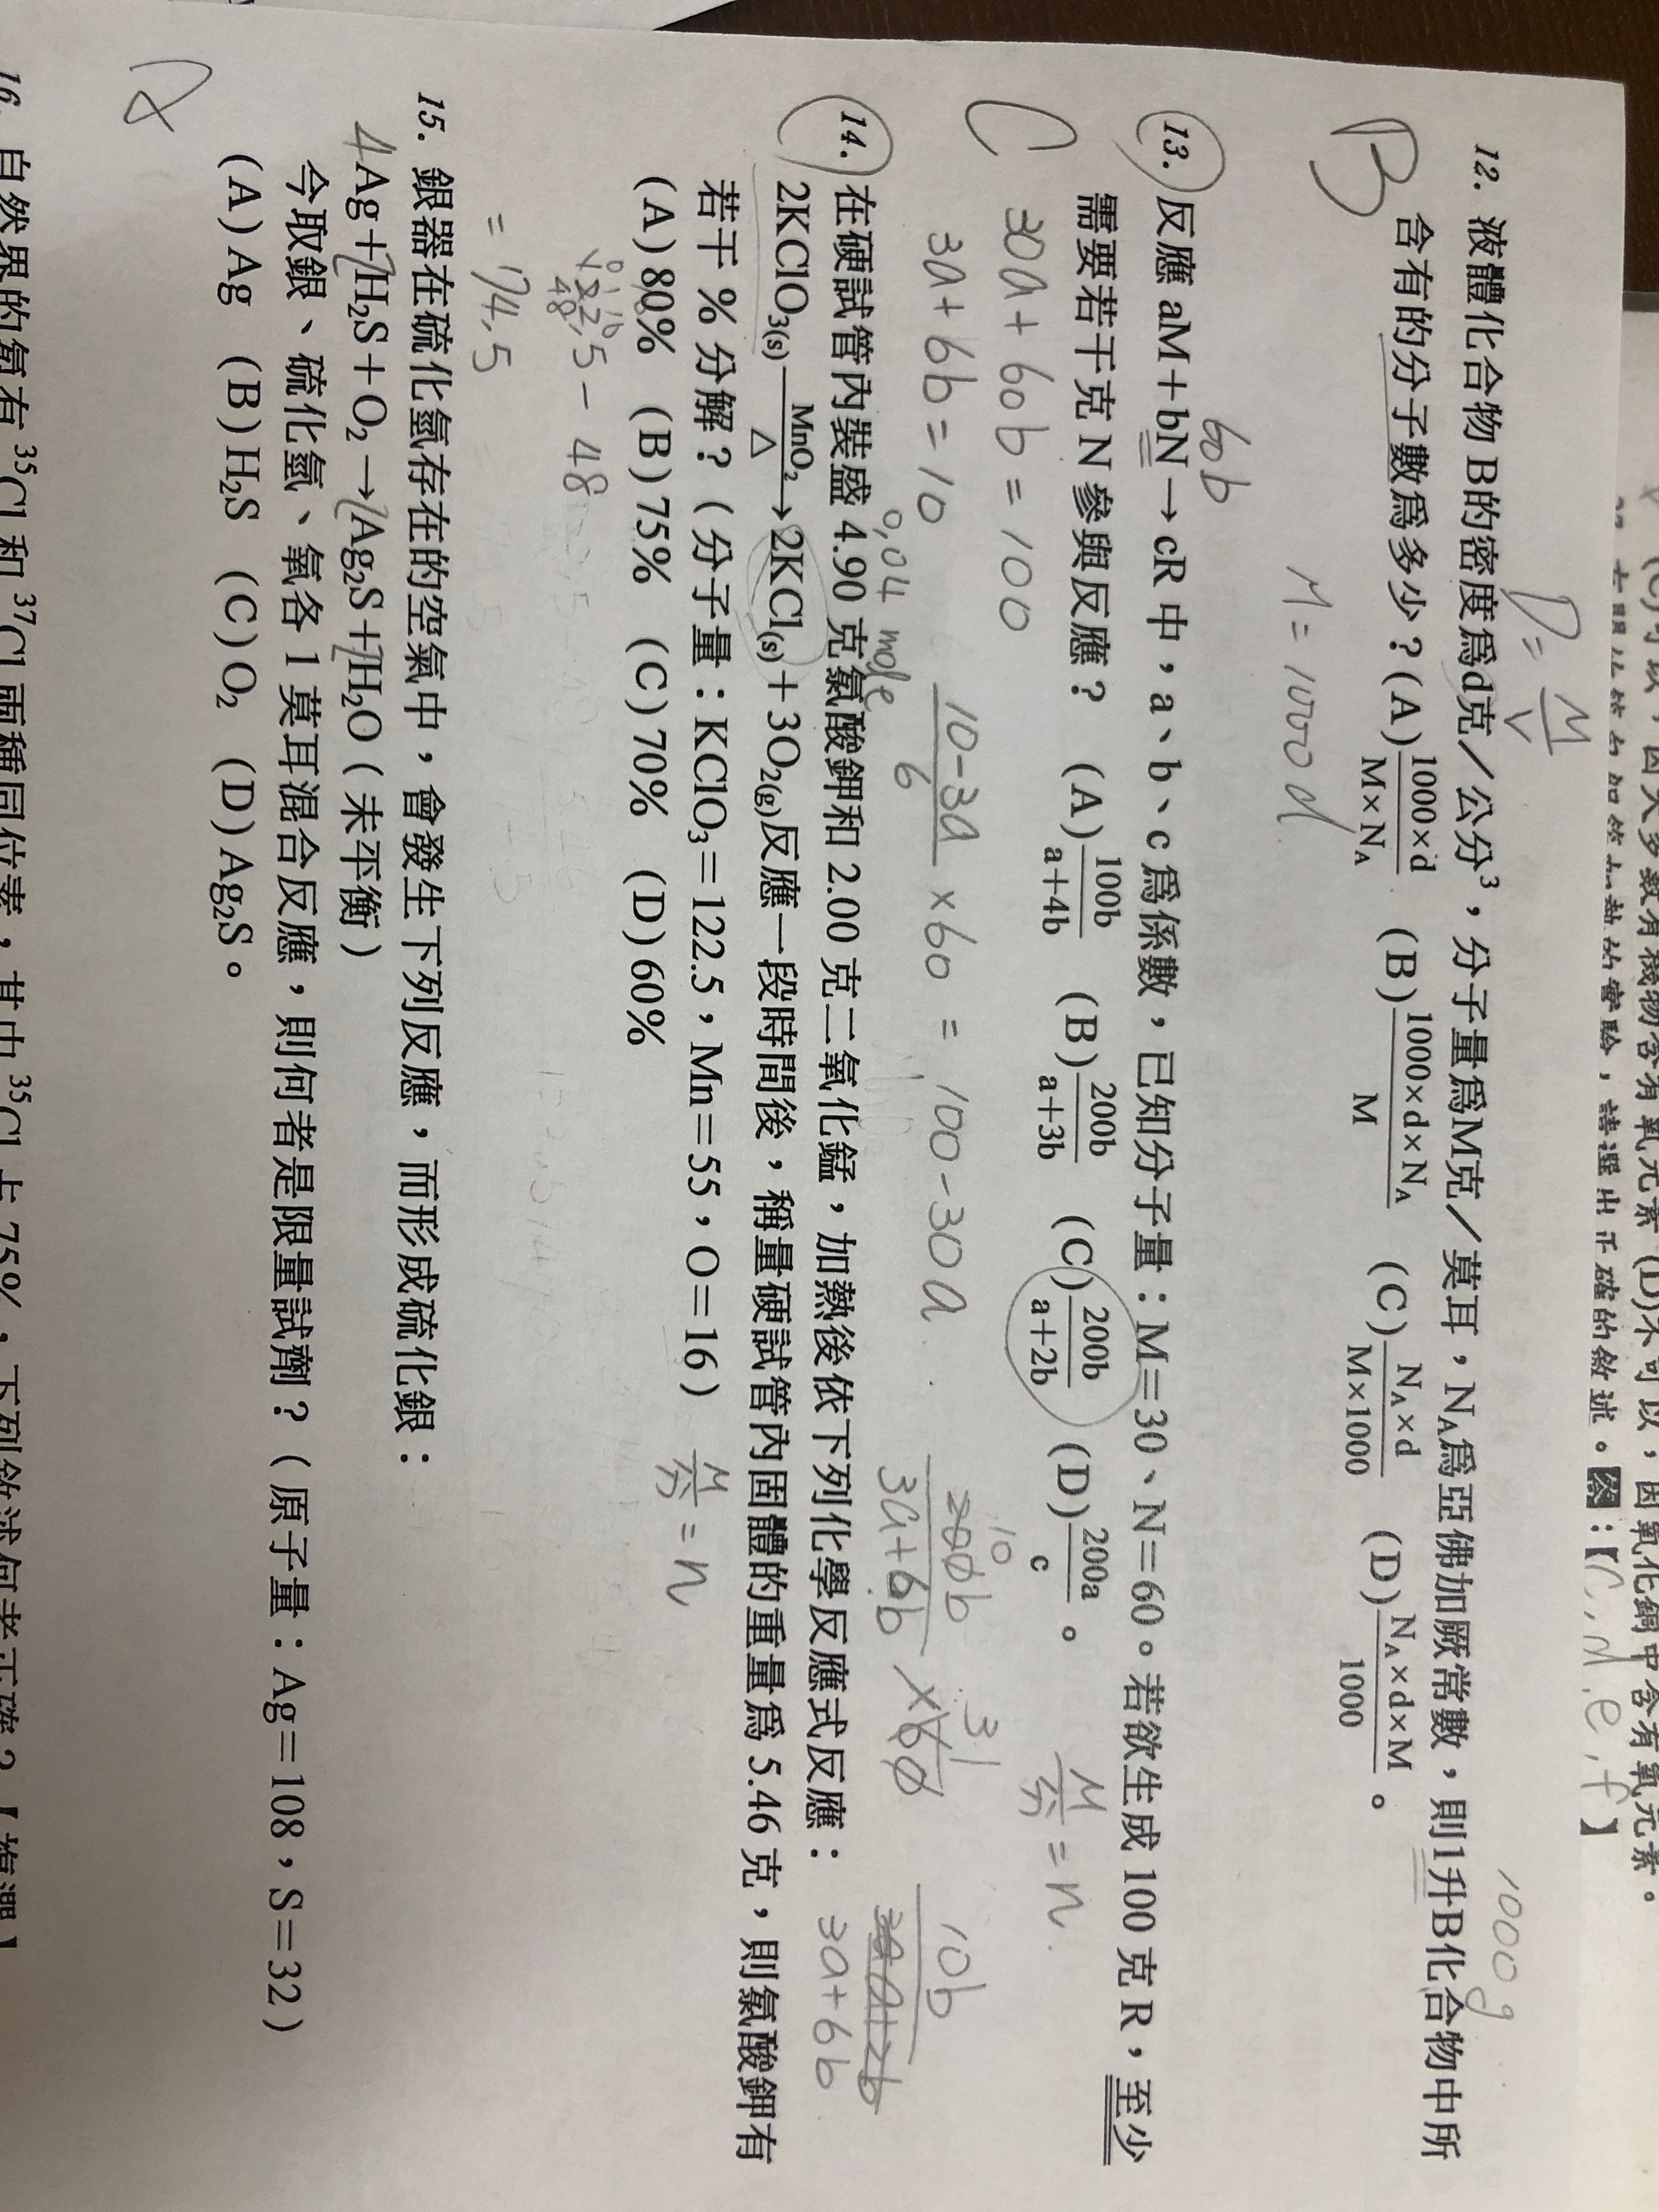 (C)可以，因大多數有機物含有氧元素 (D)不可以，因氧化銅中含有氧元素。
請選出正確的敘述。答：【C,d,e,f】
D=M/V
1000g
12. 液體化合物B的密度爲d克／公分³，分子量爲M克／莫耳，N_A爲亞佛加厥常數，則1升B化合物中所
含有的分子數爲多少？(A) 1000×d/M×N_A (B) 1000×d×N_A/M (C) N_A×d/M×1000 (D) N_A×d×M/1000。
B
M=1000d
60b
13. 反應 aM＋bN→cR 中，a、b、c 爲係數，已知分子量：M＝30、N＝60。若欲生成 100 克 R，至少
需要若干克 N 參與反應？ (A) 100b/a+4b (B) 200b/a+3b (C) 200b/a+2b (D) 200a/c。
M/分=n
C
30a+60b=100
3a+6b=10
10-3a/6 ×60=100-30a
10
200b/3a+6b ×60
31
10b/3a+6b
0.04 mole
14. 在硬試管內裝盛 4.90 克氯酸鉀和 2.00 克二氧化錳，加熱後依下列化學反應式反應：
2KClO₃(s) —MnO₂/△→ 2KCl(s)＋3O₂(g)反應一段時間後，稱量硬試管內固體的重量爲 5.46 克，則氯酸鉀有
若干 % 分解？（分子量：KClO₃＝122.5，Mn＝55，O＝16）
M/分=n
(A)80% (B)75% (C)70% (D)60%
122.5-48
48
=74.5
15. 銀器在硫化氫存在的空氣中，會發生下列反應，而形成硫化銀：
4Ag＋2H₂S＋O₂→2Ag₂S＋2H₂O（未平衡）
今取銀、硫化氫、氧各 1 莫耳混合反應，則何者是限量試劑？（原子量：Ag＝108，S＝32）
(A)Ag (B)H₂S (C)O₂ (D)Ag₂S。
16. 自然界的氯有 ³⁵Cl 和 ³⁷Cl 兩種同位素，其中 ³⁵Cl 占 75%，下列敘述何者正確？【複選】